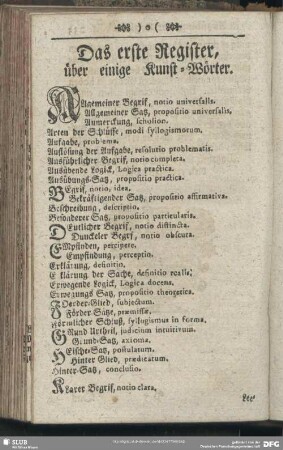 ) o (
Das erste Register,
über einige Kunst-Wörter.
Allgemeiner Begrif, notio universalis.
Allgemeiner Satz, propositio universalis.
Anmerckung, scholion.
Arten der Schlüsse, modi syllogismorum.
Aufgabe, problema.
Auflösung der Aufgabe, resolutio problematis.
Ausführlicher Begrif, notio completa.
Ausübende Logick, Logica practica.
Ausübungs-Satz, propositio practica.
BEgrif, notio, idea.
Bekräftigender Satz, propositio affirmativa.
Beschreibung, descriptio.
Besonderer Satz, propositio particularis.
DEutlicher Begrif, notio distincta.
Dunckeler Begrif, notio obscura.
EMpfinden, percipere.
Empfindung, perceptio.
Erklärung, definitio.
Erklärung der Sache, definitio realis.
Erwegende Logick, Logica docens.
Erwegungs Satz, propositio theoretica.
FOerder-Glied, subjectum.
Förder-Sätze, præmissæ.
Förmlicher Schluß, syllogismus in forma.
GRund Urtheil, judicium intuitivum.
Grund-Satz, axioma.
HEische-Satz, postulatum.
Hinter Glied, prædicatum.
Hinter-Satz, conclusio.
KLarer Begrif, notio clara.
SLUB
DFG